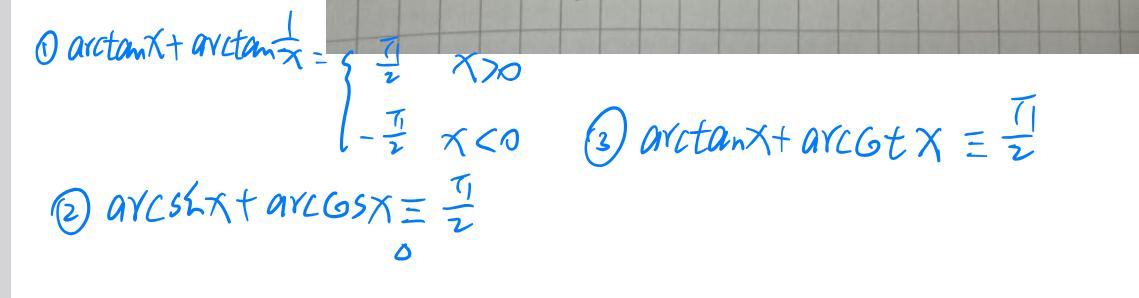 ① arctanx + arctan 1/x = { π/2  x>0
-π/2  x<0
③ arctanx + arccotx ≡ π/2
② arcsinx + arccosx ≡ π/2